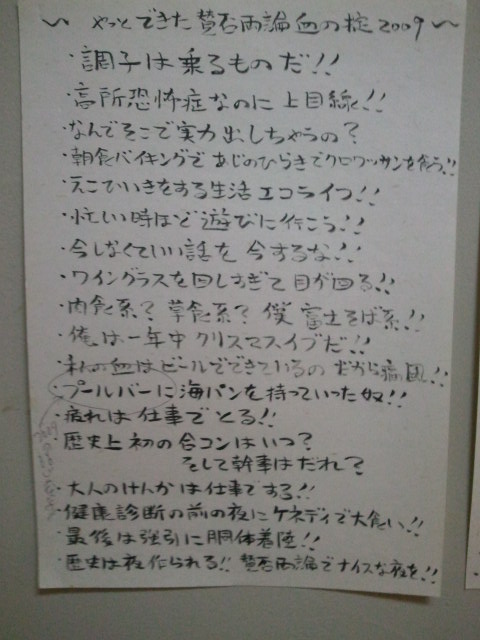 〜やっとできた 賛否両論 血の掟 2009〜
・調子は乗るものだ!!
・高所恐怖症なのに上目線!!
・なんでそこで実力出しちゃうの?
・朝食バイキングであじのひらきでクロワッサンを食う!!
・えこひいきをする生活エコライフ!!
・忙しい時ほど遊びに行こう!!
・今しなくていい話を今するな!!
・ワイングラスを回しすぎて目が回る!!
・肉食系?草食系?僕富士そば系!!
・俺は一年中クリスマスイブだ!!
・私の血はビールでできているの だから痛風!!
・プールバーに海パンを持っていった奴!!
・疲れは仕事でとる!!
・歴史上初の合コンはいつ?
そして幹事はだれ?
・大人のけんかは仕事でする!!
・健康診断の前の夜にケネディで大食い!!
・最後は強引に胴体着陸!!
・歴史は夜作られる!!賛否両論でナイスな夜を!!